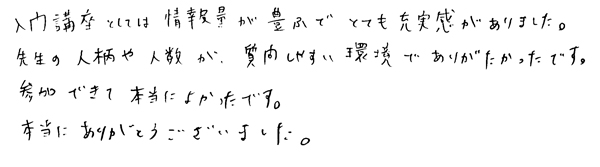 入門講座としては情報量が豊ふでとても充実感がありました。
先生の人柄や人数が、質問しやすい環境でありがたかったです。
参加できて本当によかったです。
本当にありがとうございました。